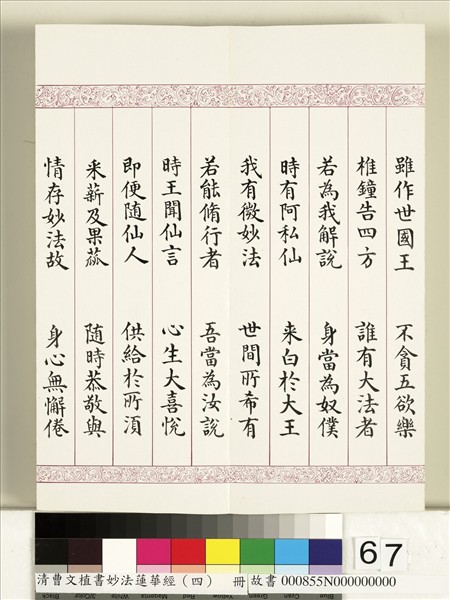 雖作世國王　不貪五欲樂
椎鐘告四方　誰有大法者
若為我解說　身當為奴僕
時有阿私仙　来白於大王
我有微妙法　世間所希有
若能脩行者　吾當為汝說
時王聞仙言　心生大喜悅
即便隨仙人　供給於所湏
采薪及果蓏　隨時恭敬與
情存妙法故　身心無懈倦
67
清曹文植書妙法蓮華經（四）　冊 故書 000855N000000000